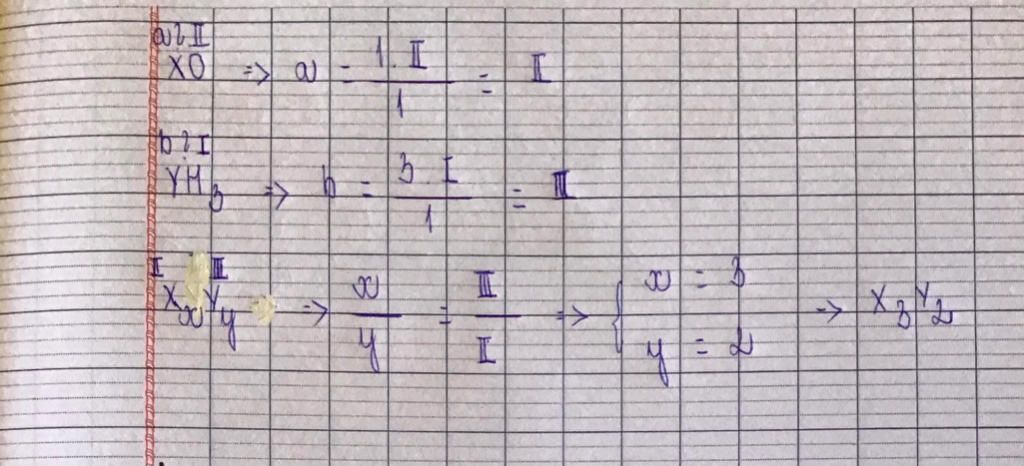 a? II
XO => a = 1. II / 1 = II
b? I
YH3 => b = 3. I / 1 = III
II III
XxYy => x / y = III / II => { x = 3 y = 2 => X3Y2